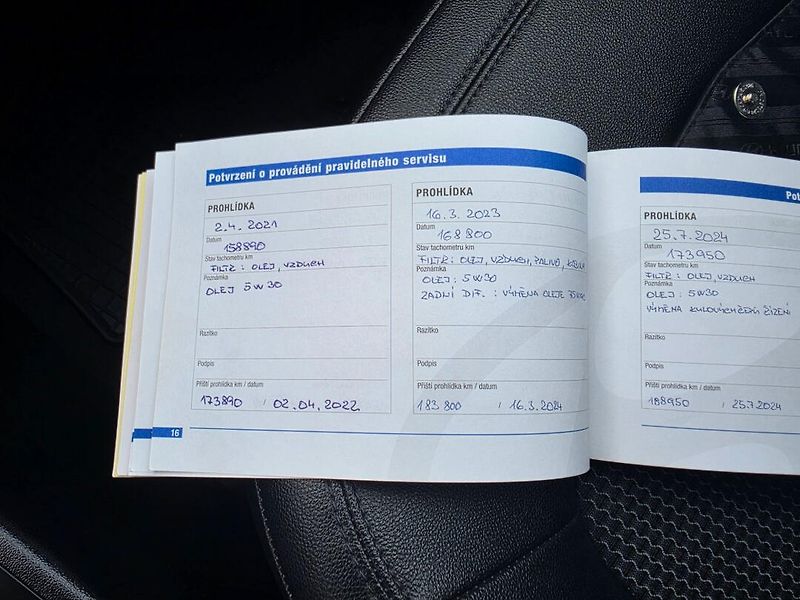 Potvrzení o provádění pravidelného servisu
PROHLÍDKA
2.4. 2021
Datum
158890
Stav tachometru km
FILTR : OLEJ, VZDUCH
Poznámka
OLEJ 5W30
Razítko
Podpis
Příští prohlídka km / datum
173890 / 02.04.2022
16
PROHLÍDKA
16.3. 2023
Datum
168 800
Stav tachometru km
FILTR : OLEJ, VZDUCH, PALIVO,
Poznámka
OLEJ : 5W30
ZADNÍ DIF. : VÝMĚNA OLEJE
Razítko
Podpis
Příští prohlídka km / datum
183 800 / 16.3.2024
Pot
PROHLÍDKA
25.7.2024
Datum
173950
Stav tachometru km
FILTR : OLEJ, VZDUCH
Poznámka
OLEJ : 5W30
VÝMĚNA KULOVÝCH ČEPŮ ŘÍZENÍ
Razítko
Podpis
Příští prohlídka km / datum
188950 / 25.7.2024